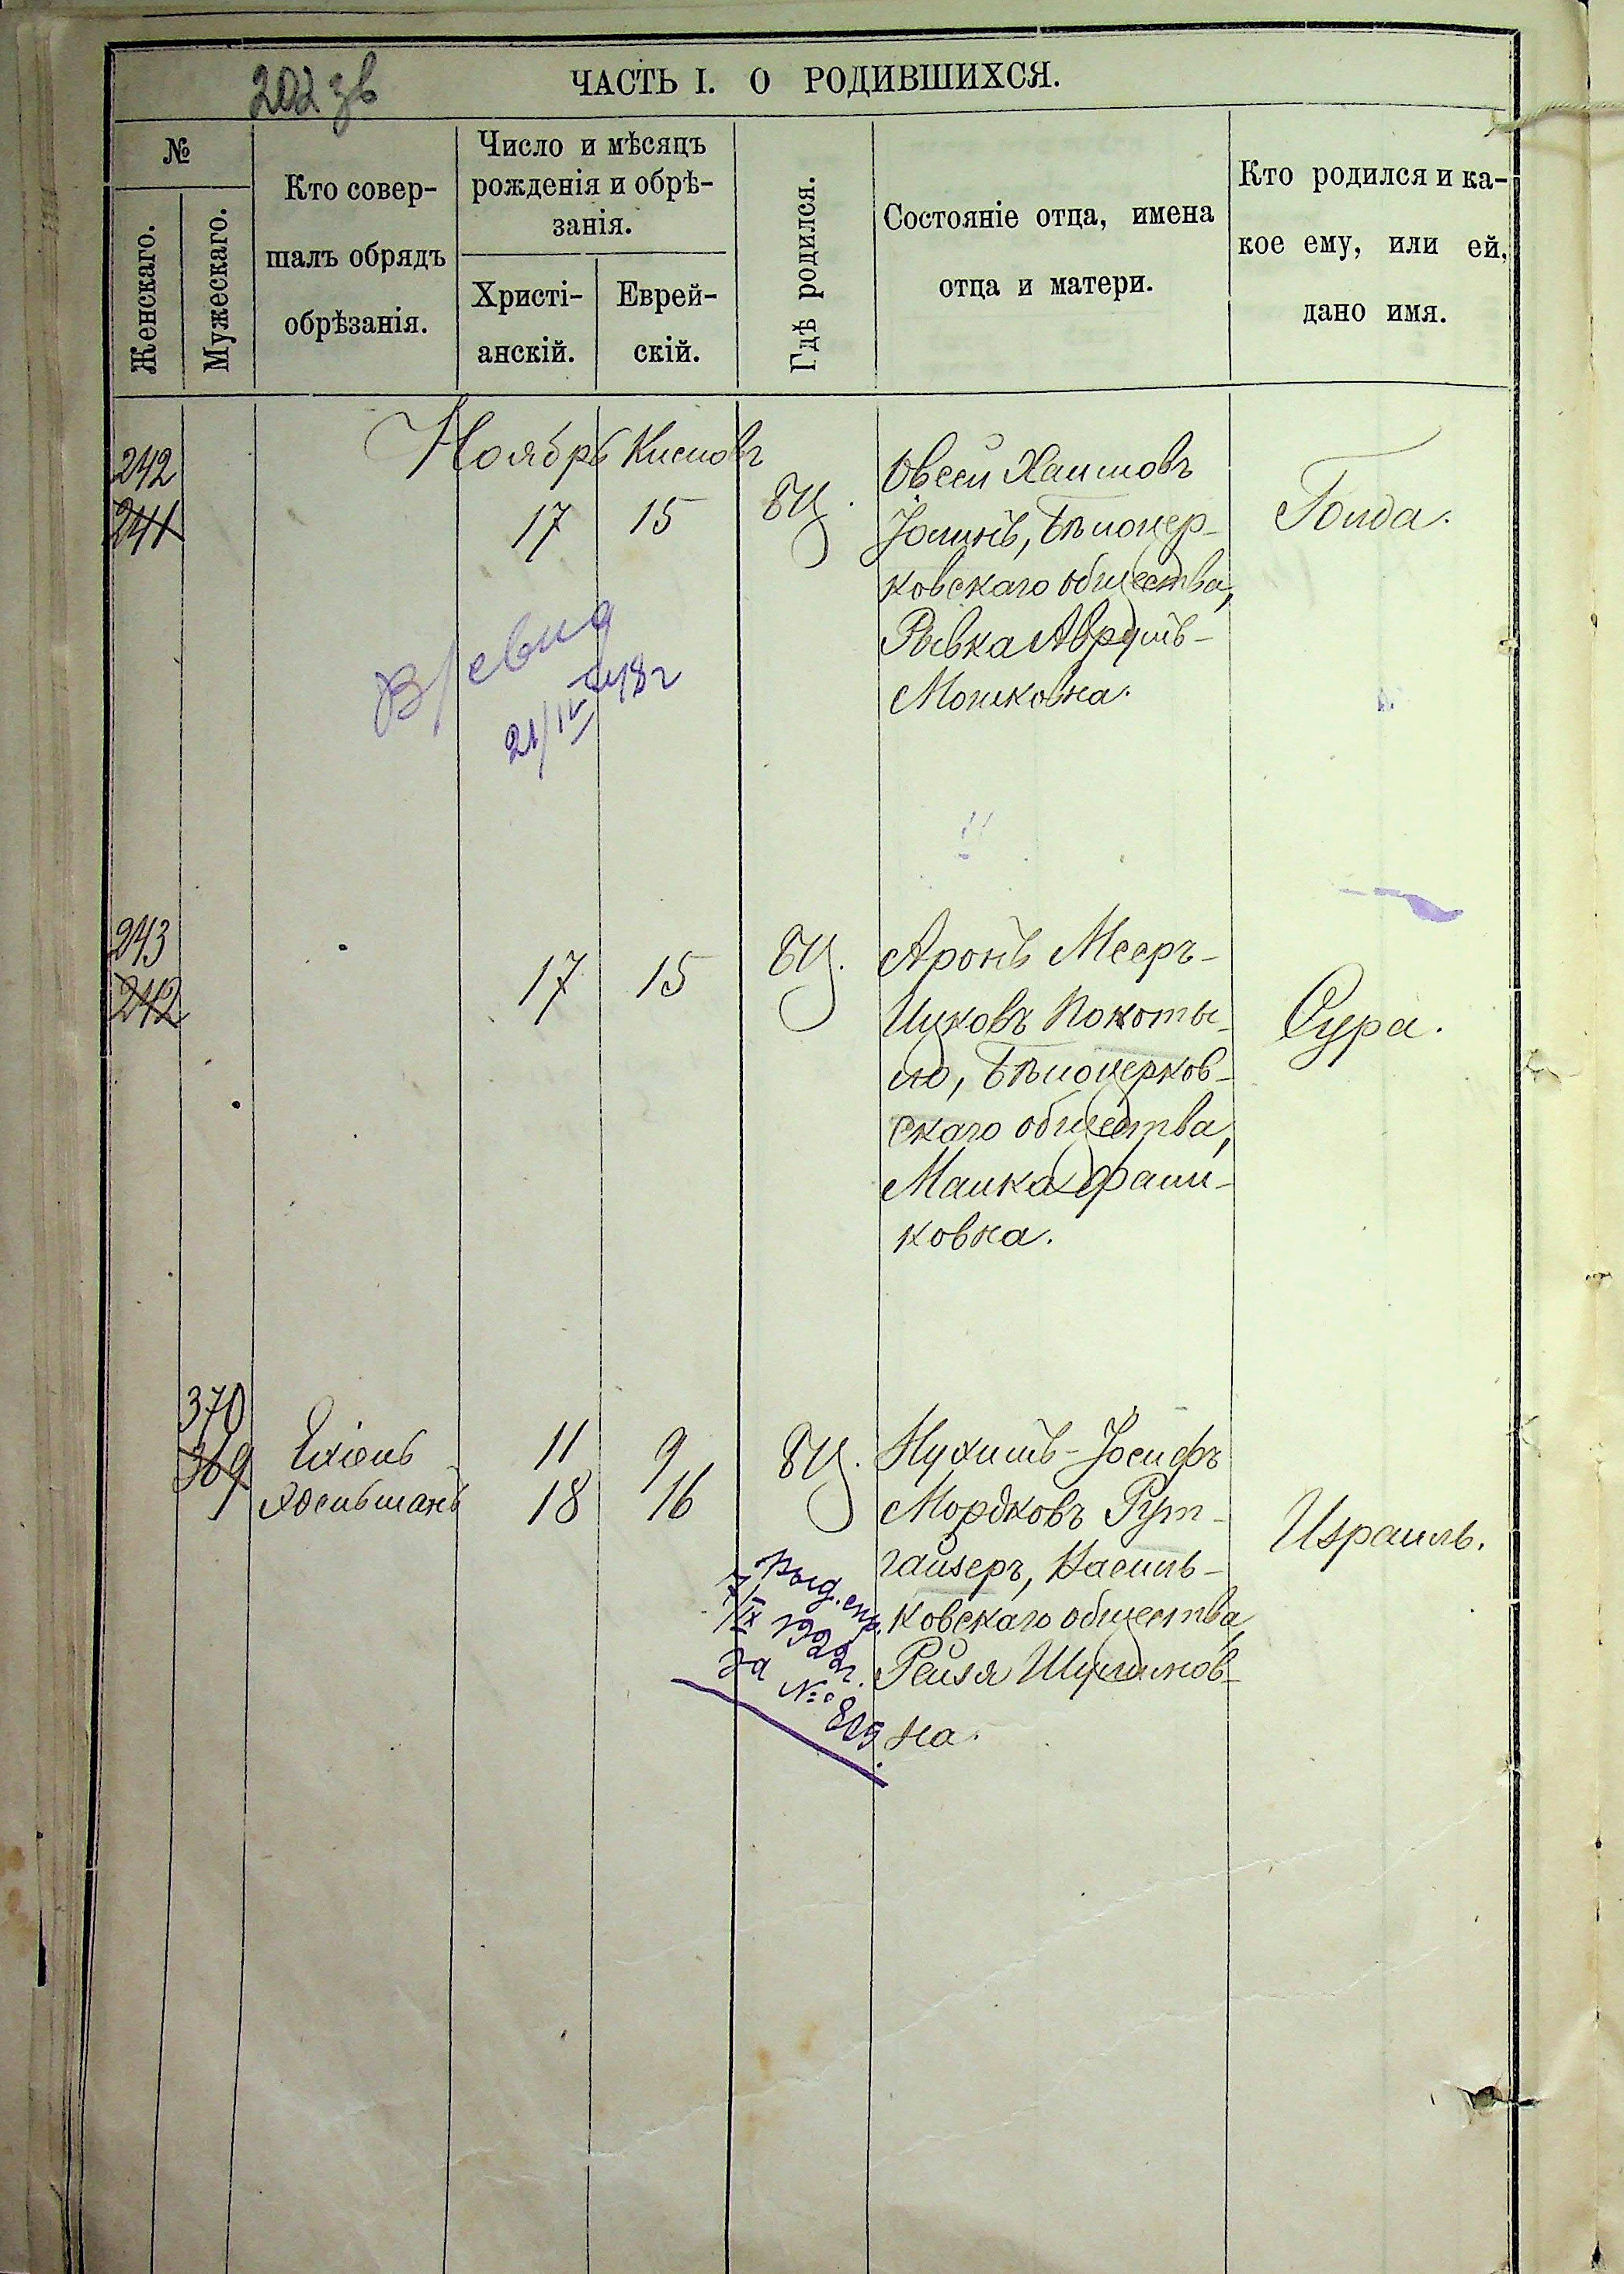 202 зв
ЧАСТЬ I. О РОДИВШИХСЯ.
№
Женскаго.
Мужескаго.
Кто совер-
шалъ обрядъ
обрѣзанія.
Число и мѣсяцъ
рожденія и обрѣ-
занія.
Христі-
анскій.
Еврей-
скій.
Гдѣ родился.
Состояніе отца, имена
отца и матери.
Кто родился и ка-
кое ему, или ей,
дано имя.
Ноябрь Кислевъ
242
241
17
15
БЦ.
Овсей Хаимовъ
Іолинъ, Бѣлоцер-
ковскаго общества,
Рывка Аврумъ-
Мошковна.
Голда.
21/IV 918 г
243
242
17
15
БЦ.
Аронъ Мееръ-
Ицковъ Покоты-
ло, Бѣлоцерков-
скаго общества,
Малка
ковна.
Сура.
370
369
Ехіель
11
18
9
16
БЦ.
Нухимъ-Іосифъ
Мордковъ Рут-
гайзеръ, Василь-
ковскаго общества,
Рейзя
на.
Израиль.
Выд. спр.
7/IX 1922г.
За № 805.